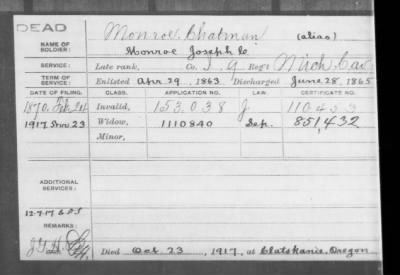 DEAD
Monroe, Chatman (alias)
NAME OF SOLDIER: Monroe Joseph C
SERVICE: Late rank, Co. I, 9 Reg't Mich Cav
TERM OF SERVICE: Enlisted Apr. 29, 1863, Discharged June 28, 1865
DATE OF FILING. CLASS. APPLICATION NO. LAW. CERTIFICATE NO.
1870, Feb Invalid, 153.038 110453
1917 Nov. 23 Widow, 1110840 Sep. 851,432
Minor,
ADDITIONAL SERVICES:
12-7-17
REMARKS:
Died Oct 23, 1917, at Clatskanie, Oregon